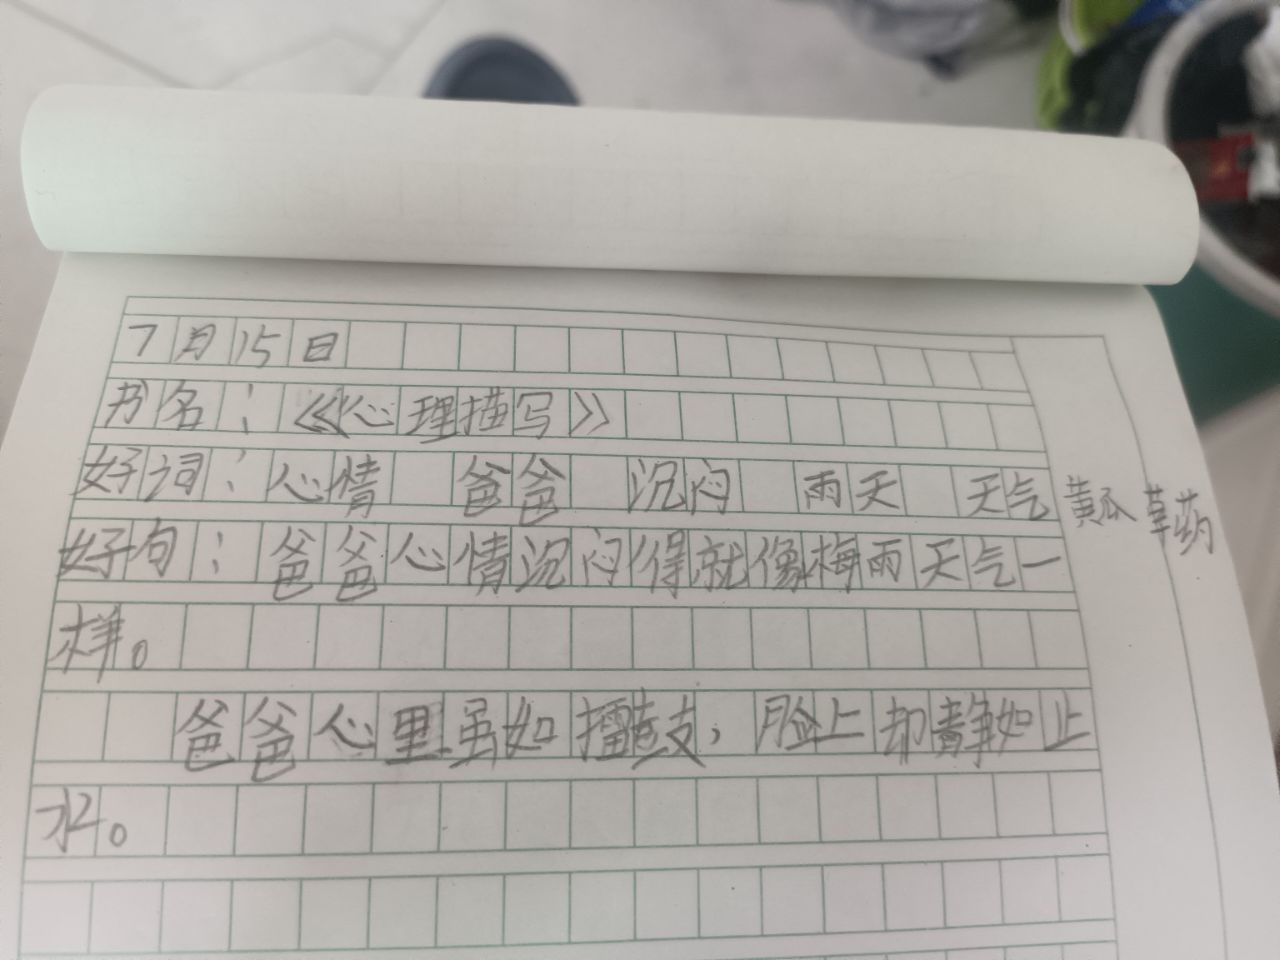 7月15日
书名：《心理描写》
好词：心情 爸爸 沉闷 雨天 天气 黄瓜 草药
好句：爸爸心情沉闷得就像梅雨天气一
样。
爸爸心里虽如擂鼓，脸上却静如止
水。